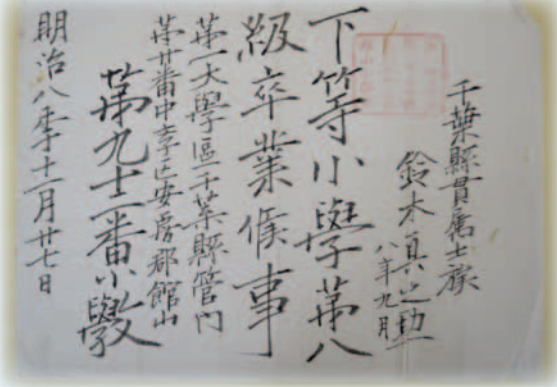 千葉縣貫属士族
鈴木真之助
八年九月
下等小學苐八
級卒業候事
苐一大學區千葉縣管内
苐廿番中學区安房郡館山
苐九十二番小學
明治八季十二月廿七日